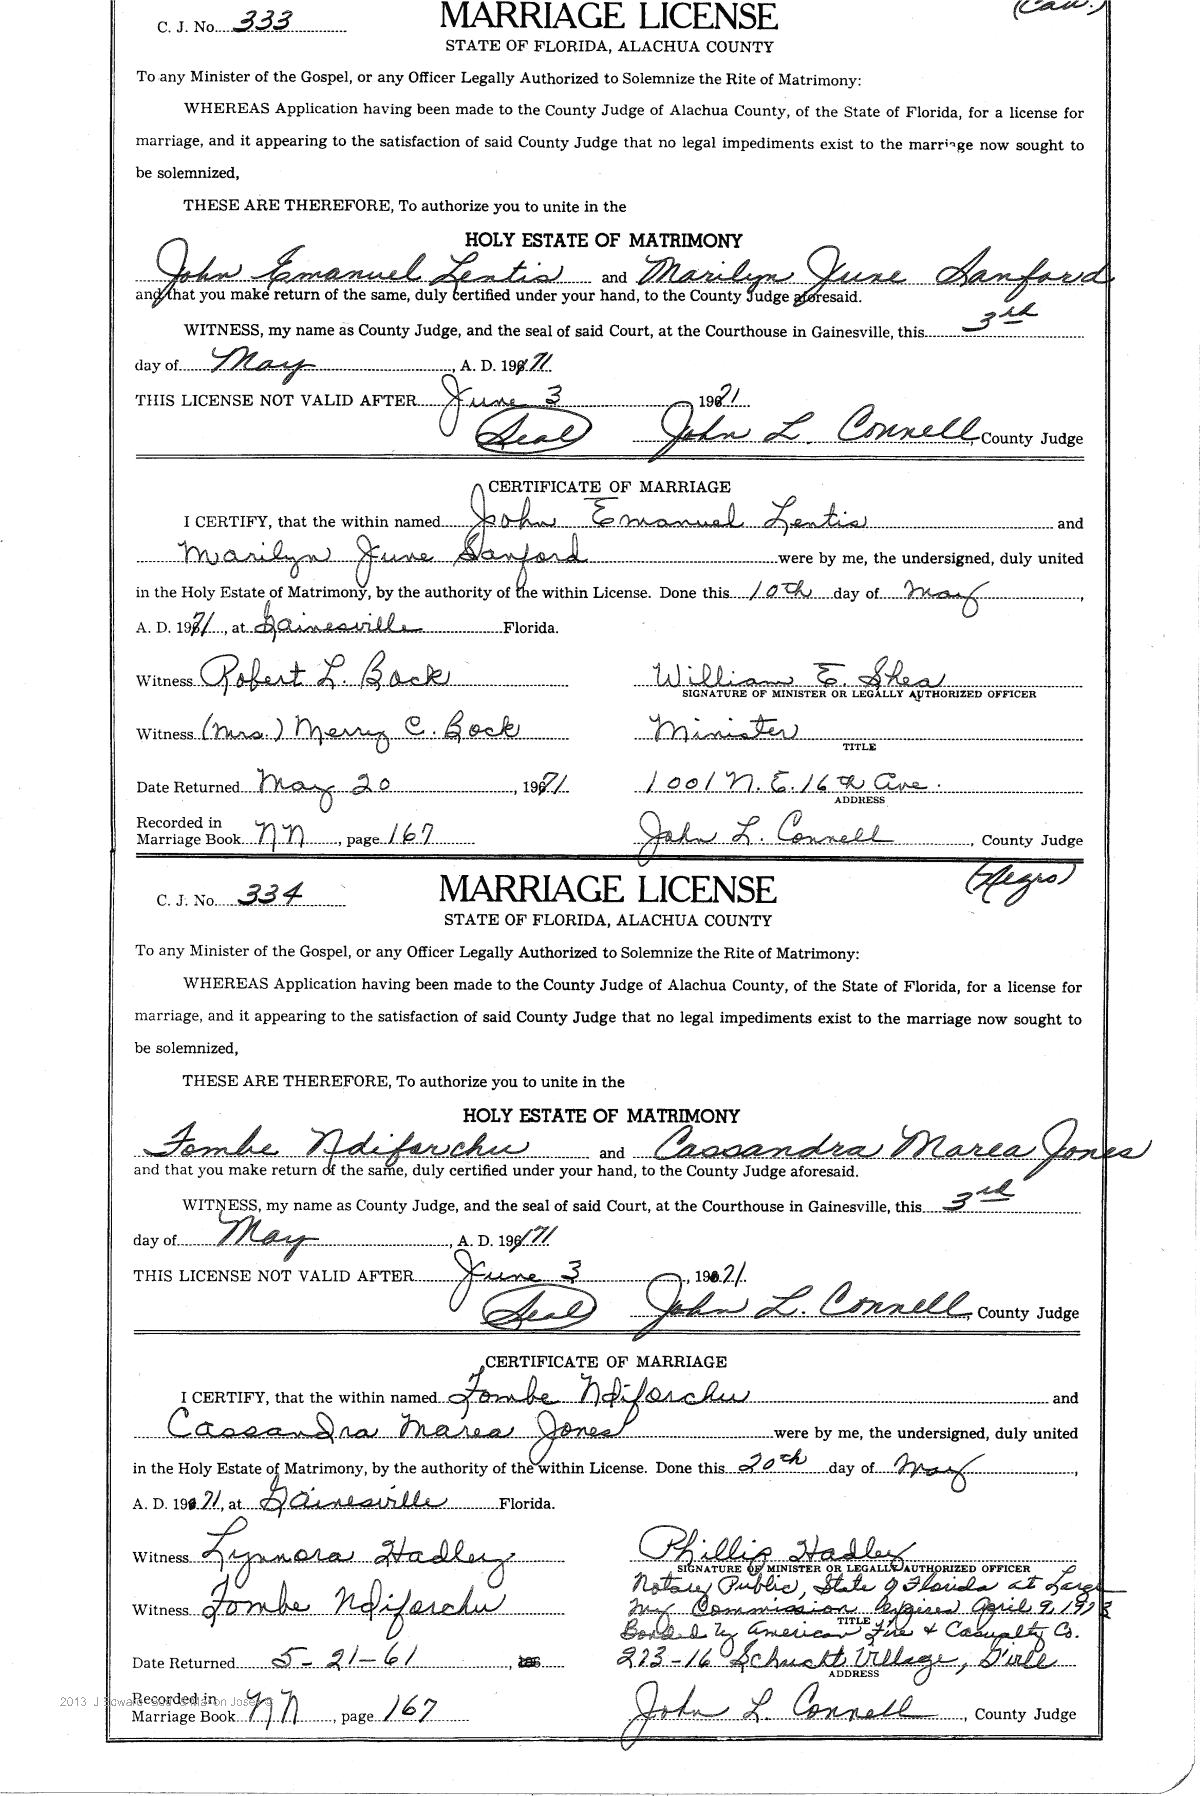 (Cau.)
C. J. No. 333 MARRIAGE LICENSE
STATE OF FLORIDA, ALACHUA COUNTY
To any Minister of the Gospel, or any Officer Legally Authorized to Solemnize the Rite of Matrimony:
WHEREAS Application having been made to the County Judge of Alachua County, of the State of Florida, for a license for
marriage, and it appearing to the satisfaction of said County Judge that no legal impediments exist to the marriage now sought to
be solemnized,
THESE ARE THEREFORE, To authorize you to unite in the
HOLY ESTATE OF MATRIMONY
John Emanuel Lentis and Marilyn June Sanford
and that you make return of the same, duly certified under your hand, to the County Judge aforesaid.
WITNESS, my name as County Judge, and the seal of said Court, at the Courthouse in Gainesville, this 3rd
day of May, A. D. 1971
THIS LICENSE NOT VALID AFTER June 3 1971
(Seal) John L. Connell County Judge
CERTIFICATE OF MARRIAGE
I CERTIFY, that the within named John Emanuel Lentis and
Marilyn June Sanford were by me, the undersigned, duly united
in the Holy Estate of Matrimony, by the authority of the within License. Done this 10th day of May,
A. D. 1971, at Gainesville Florida.
Witness Robert L. Bock William E. Shea
SIGNATURE OF MINISTER OR LEGALLY AUTHORIZED OFFICER
Witness (Mrs.) Merry C. Bock Minister
TITLE
Date Returned May 20, 1971 1001 N. E. 16th Ave.
ADDRESS
Recorded in
Marriage Book NN, page 167 John L. Connell, County Judge
(Negro)
C. J. No. 334 MARRIAGE LICENSE
STATE OF FLORIDA, ALACHUA COUNTY
To any Minister of the Gospel, or any Officer Legally Authorized to Solemnize the Rite of Matrimony:
WHEREAS Application having been made to the County Judge of Alachua County, of the State of Florida, for a license for
marriage, and it appearing to the satisfaction of said County Judge that no legal impediments exist to the marriage now sought to
be solemnized,
THESE ARE THEREFORE, To authorize you to unite in the
HOLY ESTATE OF MATRIMONY
Fombe Ndiforchu and Cassandra Marea Jones
and that you make return of the same, duly certified under your hand, to the County Judge aforesaid.
WITNESS, my name as County Judge, and the seal of said Court, at the Courthouse in Gainesville, this 3rd
day of May, A. D. 1971
THIS LICENSE NOT VALID AFTER June 3, 1971
(Seal) John L. Connell, County Judge
CERTIFICATE OF MARRIAGE
I CERTIFY, that the within named Fombe Ndiforchu and
Cassandra Marea Jones were by me, the undersigned, duly united
in the Holy Estate of Matrimony, by the authority of the within License. Done this 20th day of May,
A. D. 1971, at Gainesville Florida.
Witness Lynnora Hadley Phillip Hadley
SIGNATURE OF MINISTER OR LEGALLY AUTHORIZED OFFICER
Notary Public, State of Florida at Large
Witness Fombe Ndiforchu My Commission expires April 9, 1973
TITLE
Bonded by American Fire & Casualty Co.
Date Returned 5-21-61, 273-16 Village, G'ville
ADDRESS
Recorded in
Marriage Book NN, page 167 John L. Connell, County Judge